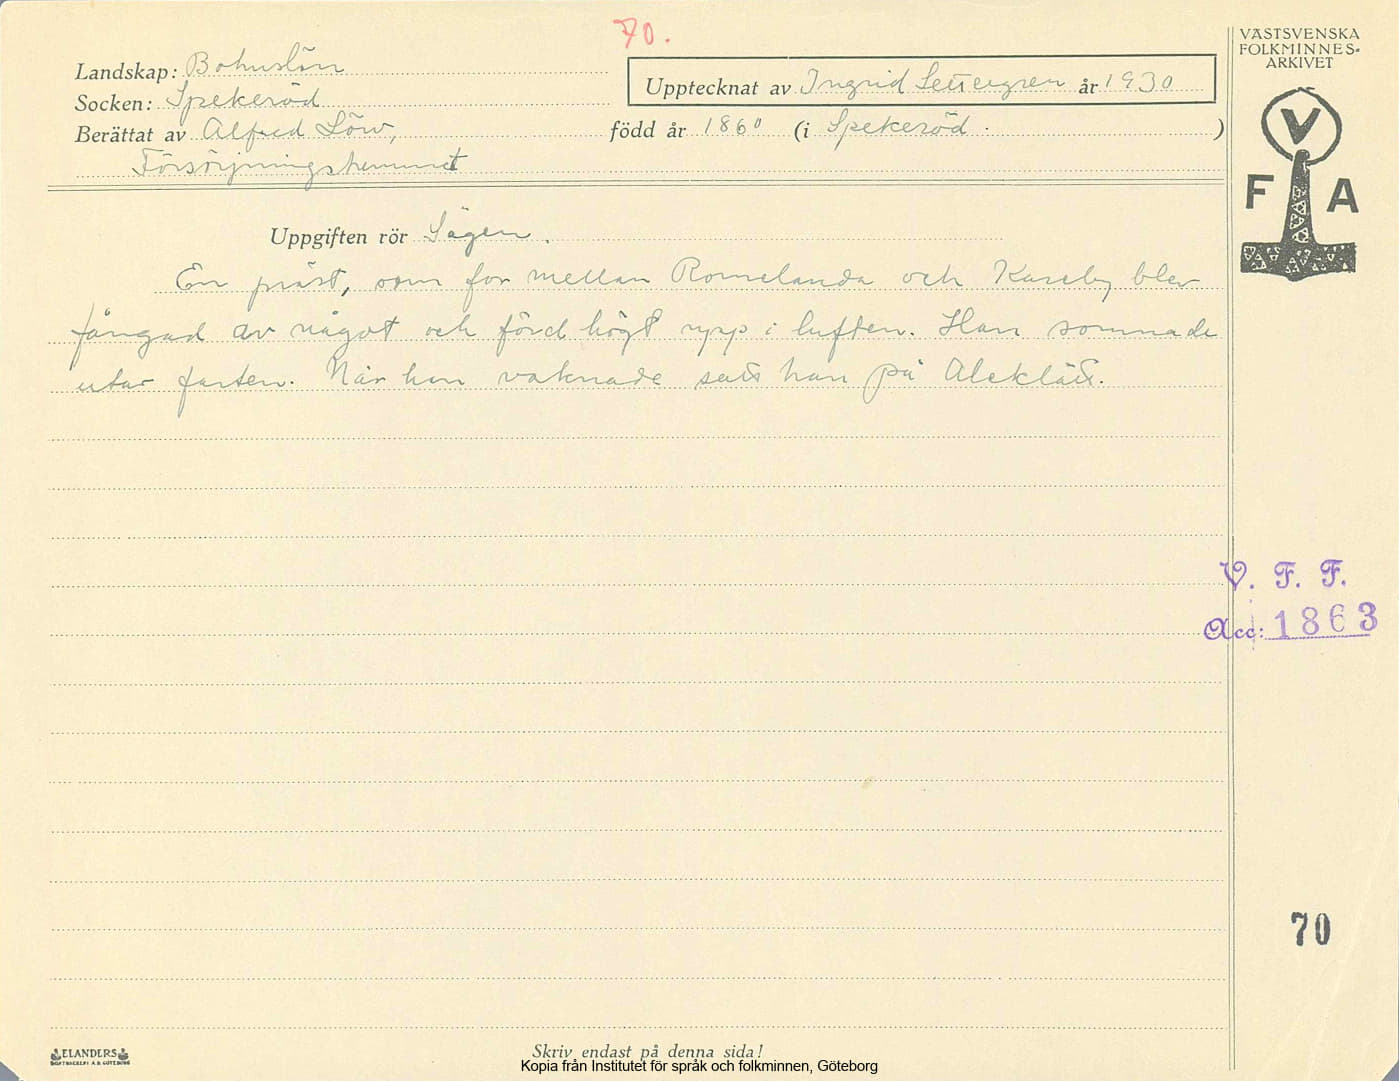 70.
VÄSTSVENSKA
FOLKMINNES-
ARKIVET
Landskap: Bohuslän
Upptecknat av Ingrid Settergren år 1930
Socken: Spekeröd
Berättat av Alfred Löw, född år 1860 (i Spekeröd.)
Försörjningshemmet
V
F A
Uppgiften rör Sägen.
En präst, som for mellan Romelanda och Kareby blev
fångad av något och förd högt upp i luften. Han somnade
utav farten. När han vaknade satt han på Aleklätt.
V. F. F.
Acc: 1863
70
ELANDERS
BOKTRYCKERI A.B. GÖTEBORG
Skriv endast på denna sida!
Kopia från Institutet för språk och folkminnen, Göteborg